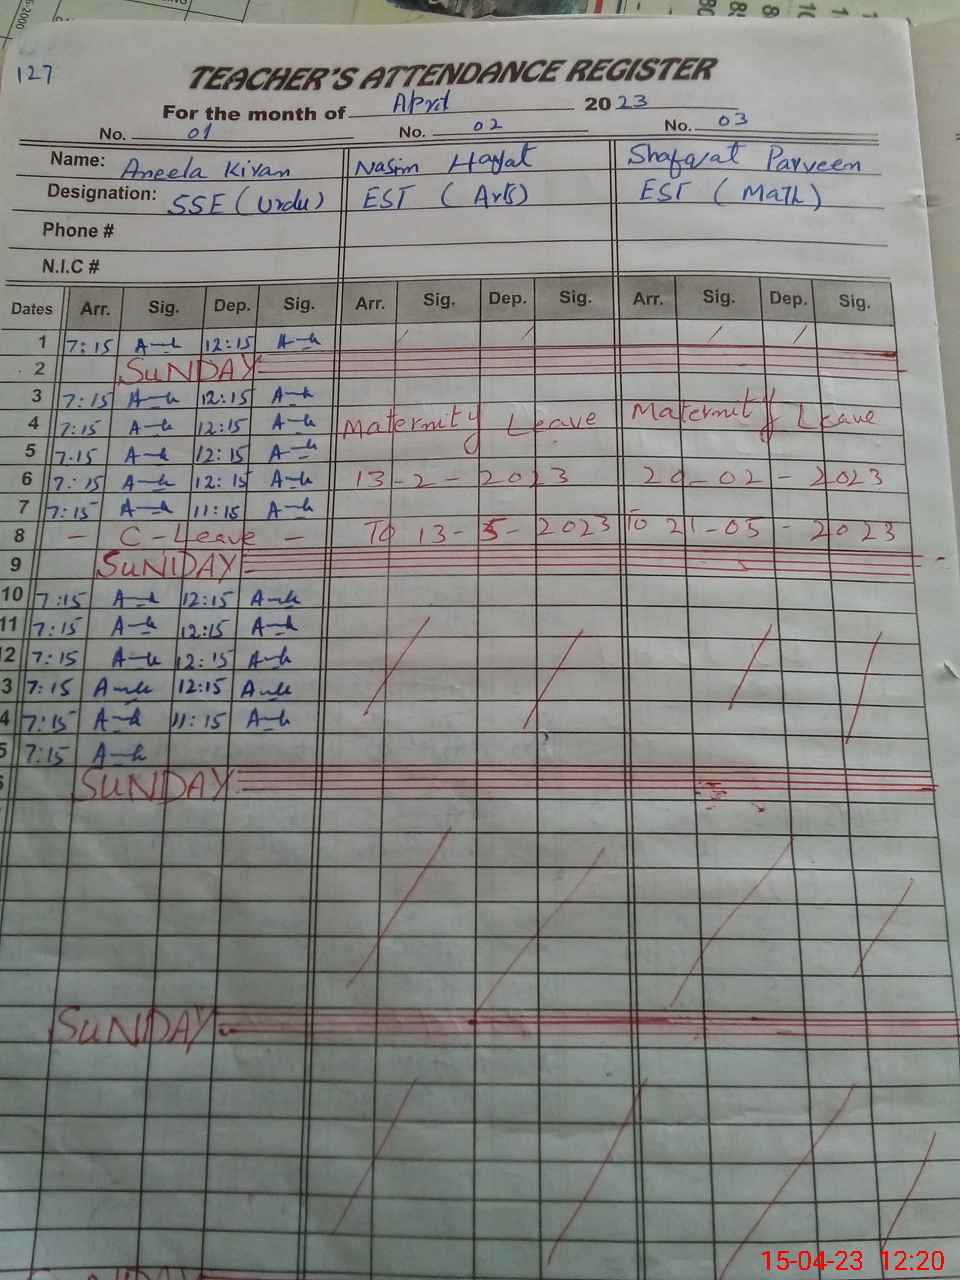 127
TEACHER'S ATTENDANCE REGISTER
For the month of April 2023
No. 01 No. 02 No. 03
Name: Aneela Kiran Nasim Hayat Shafqat Parveen
Designation: SSE (Urdu) EST (Arts) EST (Math)
Phone #
N.I.C #
Dates Arr. Sig. Dep. Sig. Arr. Sig. Dep. Sig. Arr. Sig. Dep. Sig.
1 7:15 12:15
2 SUNDAY
3 7:15 12:15
4 7:15 12:15 Maternity Leave Maternity Leave
5 7:15 12:15
6 7:15 12:15 13-2-2023 20-02-2023
7 7:15 11:15
8 — C-Leave — To 13-5-2023 To 21-05-2023
9 SUNDAY
10 7:15 12:15
11 7:15 12:15
12 7:15 12:15
3 7:15 12:15
4 7:15 11:15
5 7:15
SUNDAY
SUNDAY
SUNDAY
15-04-23 12:20